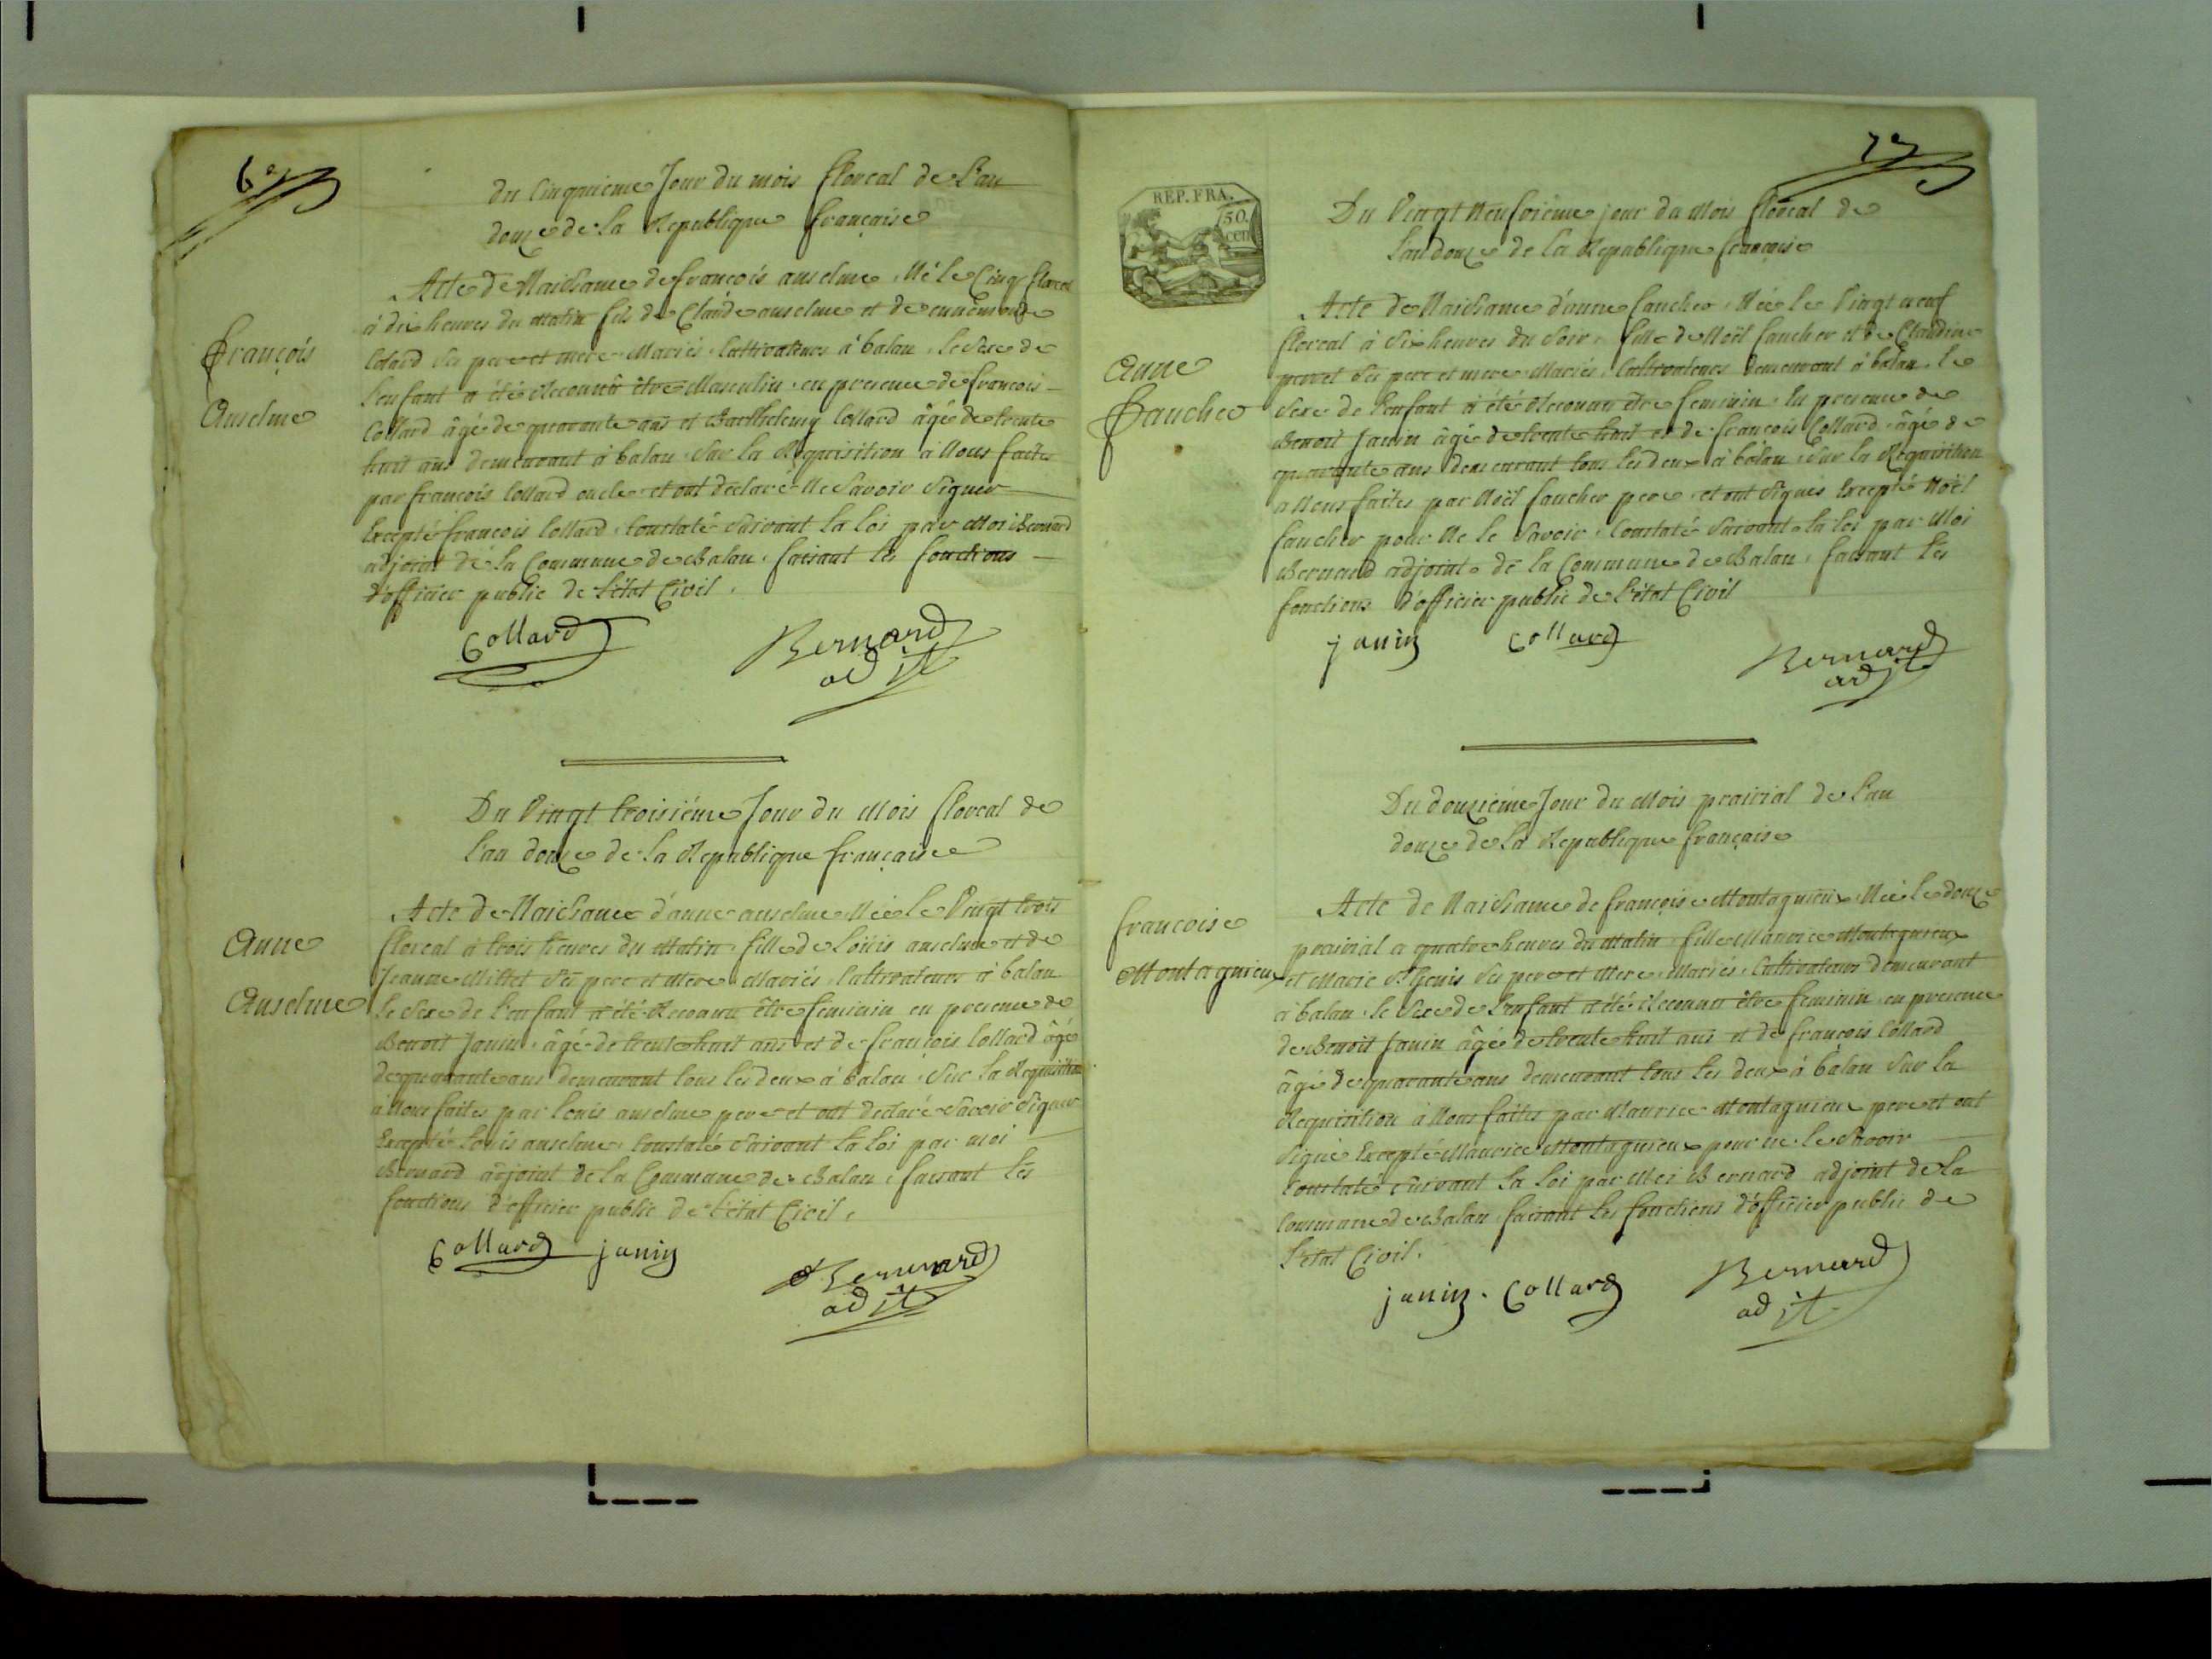 6e
du Cinquieme Jour du mois floreal de l'an
douze de la Republique française
François
Anselme
Acte de Naissance de françois anselme Né le Cinq floreal
à dix heures du matin fils de Claude anselme et de ennemonde
Colard ses pere et mere Mariés Cultivateurs à balan le Sexe de
l'enfant a été Reconnu être Masculin en presence de françois
Collard âgé de quarante ans et Barthelemy Collard âgé de trente
huit ans demeurant à balan Sur la Requisition à Nous faite
par françois Collard oncle et ont declaré Ne Savoir Signer
Excepté françois Collard Constaté Suivant la loi par Moi Bernard
adjoint de la Commune de Balan faisant les fonctions
d'officier public de l'état Civil.
Collard Bernard
adjt
Du Vingt troisiéme Jour du Mois floreal de
l'an douze de la Republique française
Anne
Anselme
Acte de Naissance d'anne anselme Née le Vingt trois
floreal à trois heures du Matin fille de Loüis anselme et de
Jeanne Millet Ses pere et Mere Mariés Cultivateurs à balan
le Sexe de l'enfant a été Reconnu être feminin en presence de
Benoit Janin âgé de trente huit ans et de françois Collard âgé
de quarante ans demeurant tous les deux à balan Sur la Requisition
à Nous faites par louis anselme pere et ont declaré Savoir Signer
Excepté Louis anselme Constaté Suivant la loi par moi
Bernard adjoint de la Commune de Balan faisant les
fonctions d'officier public de l'état Civil.
Collard janin Bernard
adjt
7e
REP. FRA.
50.
cen
Du Vingt Neufvième jour du Mois floreal de
l'an douze de la Republique française
Anne
Faucher
Acte de Naissance d'anne faucher Née le Vingt neuf
floreal à Six heures du Soir fille de Noël faucher et de Claudine
perret Ses pere et mere Mariés Cultivateurs demeurant à balan le
Sexe de l'enfant a été Reconnu être feminin En presence de
Benoit Janin âgé de trente huit et de françois Collard âgé de
quarante ans demeurant tous les deux à balan Sur la Requisition
a Nous faites par Noël faucher pere et ont Signés Excepté Noël
faucher pour Ne le Savoir Constaté Suivant la loi par Moi
Bernard adjoint de la Commune de Balan faisant les
fonctions d'officier public de l'état Civil
janin Collard Bernard
adjt
Du douzieme Jour du Mois prairial de l'an
douze de la Republique française
françoise
Montagnieux
Acte de Naissance de françoise Montagnieux Née le douze
prairial a quatre heures du Matin fille Maurice Montagnieux
et Marie St Genis Ses pere et Mere Mariés Cultivateurs demeurant
à balan le Sexe de l'enfant a été Reconnu être feminin en presence
de Benoit Janin âgé de trente huit ans et de françois Collard
âgé de quarante ans demeurant tous les deux à balan Sur la
Requisition à Nous faites par Maurice Montagnieux pere et ont
Signé Excepté Maurice Montagnieux pour ne le Savoir
Constaté Suivant la loi par Moi Bernard adjoint de la
Commune de Balan faisant les fonctions d'officier public de
l'état Civil.
janin. Collard Bernard
adjt